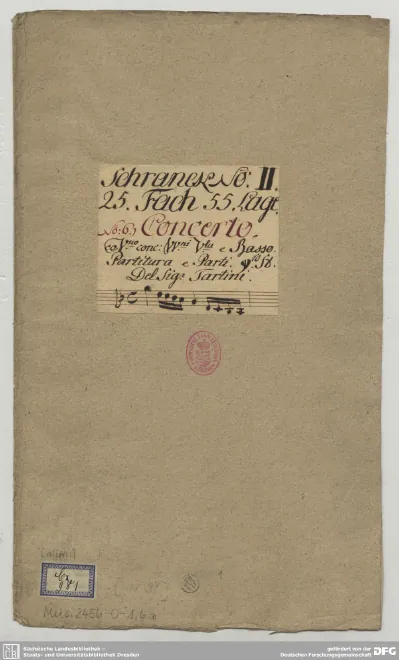 Schranck No: II.
25. Fach 55. Lage
No: 6.) Concerto.
co VVno conc: VVni Vla e Basso.
Partitura e Parti. St.
Del Sigr Tartini.
Mus. 2456-O-1,6
Sächsische Landesbibliothek –
Staats- und Universitätsbibliothek Dresden
gefördert von der
Deutschen Forschungsgemeinschaft
DFG